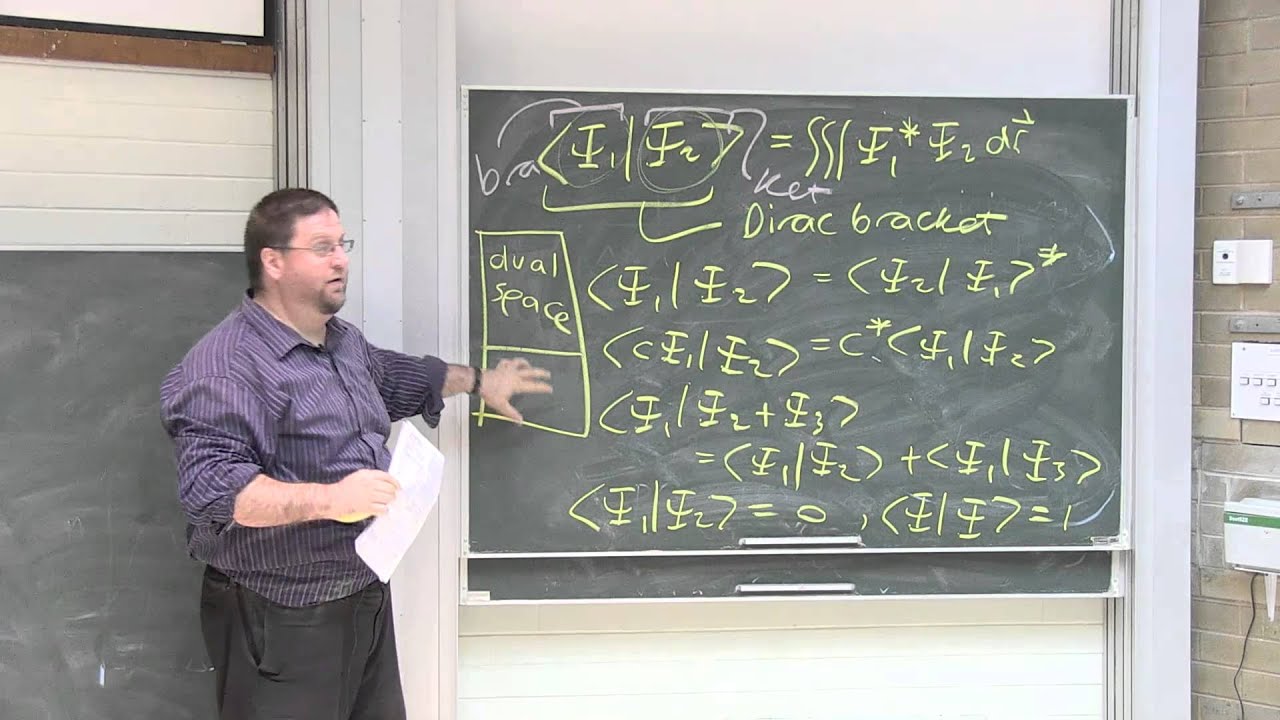 bra ⟨Ψ₁|Ψ₂⟩ = ∫∫∫ Ψ₁* Ψ₂ dr⃗
ket
Dirac bracket
dual
space
⟨Ψ₁|Ψ₂⟩ = ⟨Ψ₂|Ψ₁⟩*
⟨cΨ₁|Ψ₂⟩ = c*⟨Ψ₁|Ψ₂⟩
⟨Ψ₁|Ψ₂+Ψ₃⟩
= ⟨Ψ₁|Ψ₂⟩ + ⟨Ψ₁|Ψ₃⟩
⟨Ψ₁|Ψ₂⟩ = 0, ⟨Ψ|Ψ⟩ = 1